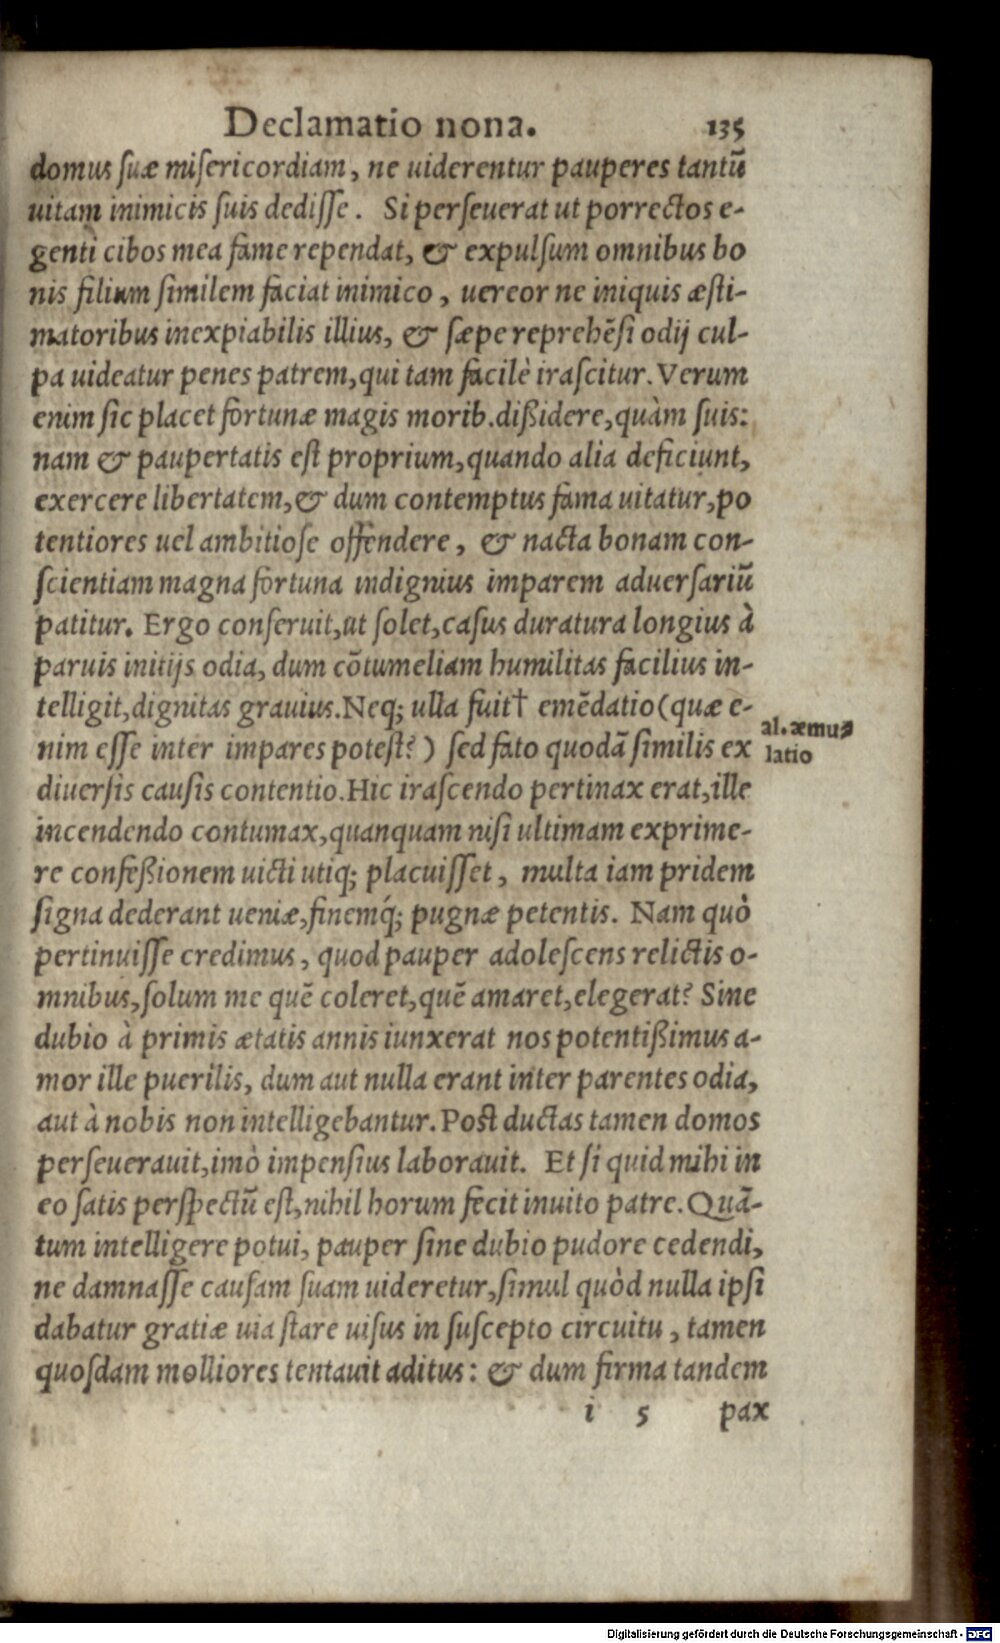 Declamatio nona. 135
domus suæ misericordiam, ne uiderentur pauperes tantū
uitam inimicis suis dedisse. Si perseuerat ut porrectos e-
genti cibos mea fame rependat, & expulsum omnibus bo
nis filium similem faciat inimico, uereor ne iniquis æsti-
matoribus inexpiabilis illius, & sæpe reprehēsi odij cul-
pa uideatur penes patrem, qui tam facilè irascitur. Verum
enim sic placet fortunæ magis morib. dißidere, quàm suis:
nam & paupertatis est proprium, quando alia deficiunt,
exercere libertatem, & dum contemptus fama uitatur, po
tentiores uel ambitiose offendere, & nacta bonam con-
scientiam magna fortuna indignius imparem aduersariū
patitur. Ergo conseruit, ut solet, casus duratura longius à
paruis initijs odia, dum cōtumeliam humilitas facilius in-
telligit, dignitas grauius. Neq; ulla fuit† emēdatio (quæ e-
al. æmu-
nim esse inter impares potest?) sed fato quodā similis ex
latio
diuersis causis contentio. Hic irascendo pertinax erat, ille
incendendo contumax, quanquam nisi ultimam exprime-
re confeßionem uicti utiq; placuisset, multa iam pridem
signa dederant ueniæ, finemq́; pugnæ petentis. Nam quò
pertinuisse credimus, quod pauper adolescens relictis o-
mnibus, solum me quē coleret, quē amaret, elegerat? Sine
dubio à primis ætatis annis iunxerat nos potentißimus a-
mor ille puerilis, dum aut nulla erant inter parentes odia,
aut à nobis non intelligebantur. Post ductas tamen domos
perseuerauit, imò impensius laborauit. Et si quid mihi in
eo satis perspectū est, nihil horum fecit inuito patre. Quā-
tum intelligere potui, pauper sine dubio pudore cedendi,
ne damnasse causam suam uideretur, simul quòd nulla ipsi
dabatur gratiæ uia stare uisus in suscepto circuitu, tamen
quosdam molliores tentauit aditus: & dum firma tandem
i 5 pax
Digitalisierung gefördert durch die Deutsche Forschungsgemeinschaft - DFG